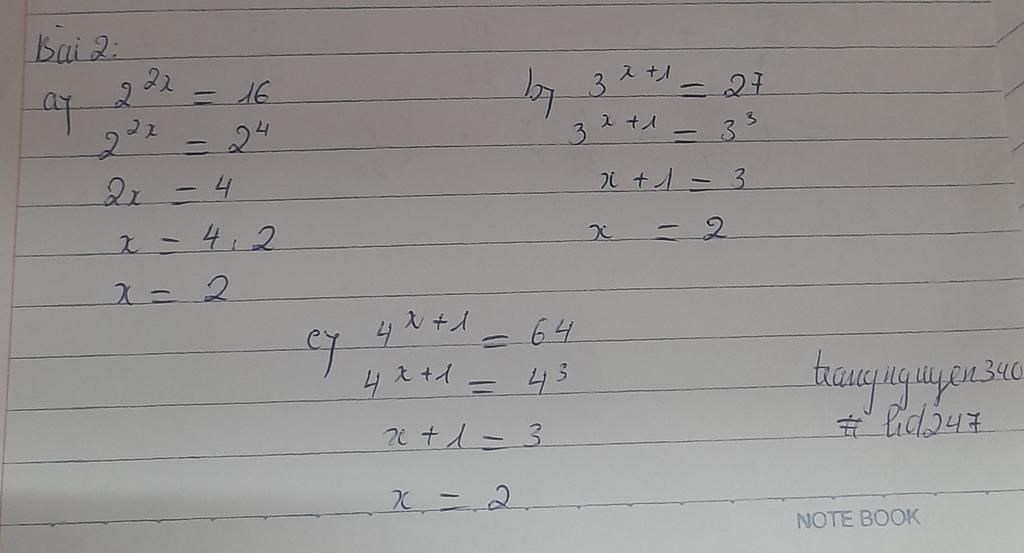 Bài 2:
a) 2^{2x} = 16
2^{2x} = 2^4
2x = 4
x = 4 : 2
x = 2
b) 3^{x+1} = 27
3^{x+1} = 3^3
x + 1 = 3
x = 2
c) 4^{x+1} = 64
4^{x+1} = 4^3
x + 1 = 3
x = 2
trangnguyen340
# hd247
NOTE BOOK